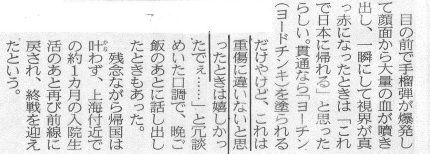 目の前で手榴弾が爆発し
て顔面から大量の血が噴き
出し、一瞬にして視界が真
っ赤になったときは「これ
で日本に帰れる」と思った
らしい。貫通なら「ヨーチン
(ヨードチンキ)を塗られる
だけやけど、これは
重傷に違いないと思
ったときは嬉しかっ
たでぇ……」と冗談
めいた口調で、晩ご
飯のあとに話し出し
たときもあった。
残念ながら帰国は
叶わず、上海付近で
の約1カ月の入院生
活のあと再び前線に
戻され、終戦を迎え
たという。